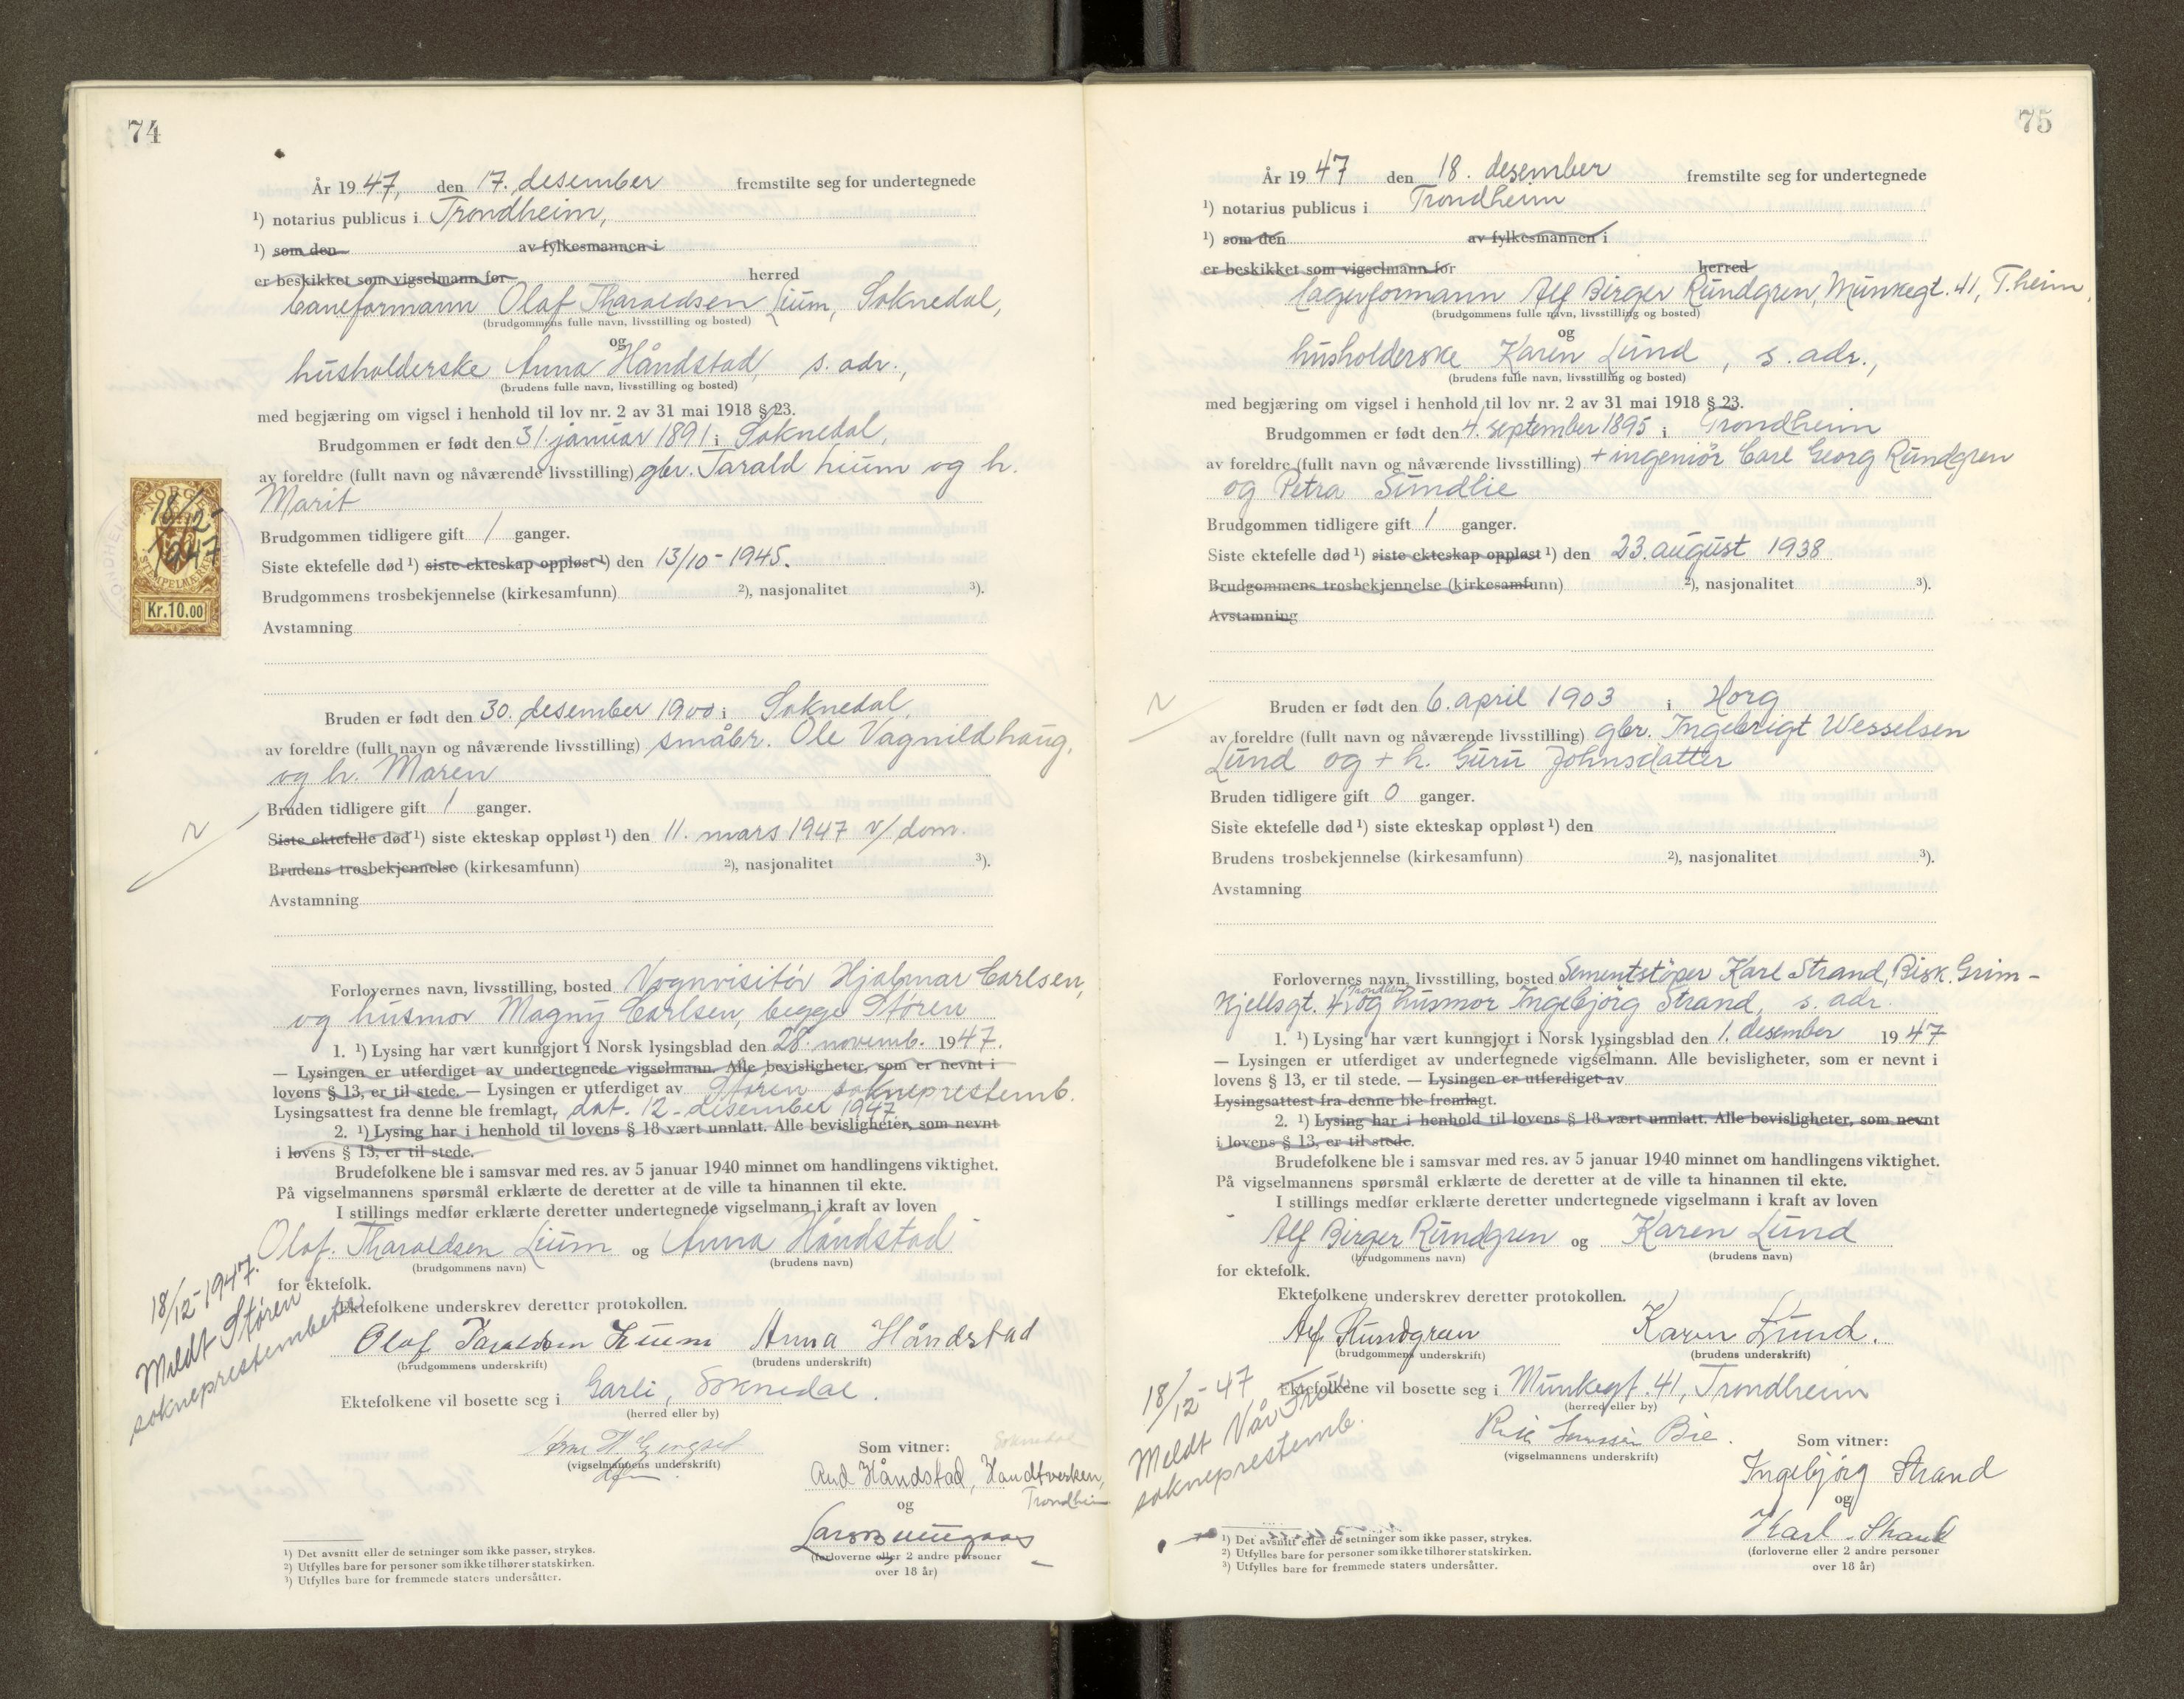 74
År 1947, den 17. desember fremstilte seg for undertegnede
¹) notarius publicus i Trondheim,
¹) som den av fylkesmannen i
er beskikket som vigselmann for herred
baneformann Olaf Tharaldsen Lium, Soknedal,
(brudgommens fulle navn, livsstilling og bosted)
og
husholderske Anna Håndstad, s. adr.,
(brudens fulle navn, livsstilling og bosted)
med begjæring om vigsel i henhold til lov nr. 2 av 31 mai 1918 § 23.
Brudgommen er født den 31. januar 1891 i Soknedal,
av foreldre (fullt navn og nåværende livsstilling) gbr. Tarald Lium og h.
Marit
Brudgommen tidligere gift 1 ganger.
Siste ektefelle død ¹) siste ekteskap oppløst ¹) den 13/10-1945.
Brudgommens trosbekjennelse (kirkesamfunn) ²), nasjonalitet ³).
Avstamning
NORGE
18/12-
1947
STEMPELMERKE
Kr.10.00
Bruden er født den 30. desember 1900 i Soknedal,
av foreldre (fullt navn og nåværende livsstilling) småbr. Ole Vagnildhaug,
og h. Maren
Bruden tidligere gift 1 ganger.
Siste ektefelle død ¹) siste ekteskap oppløst ¹) den 11. mars 1947 v/dom.
Brudens trosbekjennelse (kirkesamfunn) ²), nasjonalitet ³).
Avstamning
Forlovernes navn, livsstilling, bosted Vognvisitør Hjalmar Carlsen,
og husmor Magny Carlsen, begge Støren
1. ¹) Lysing har vært kunngjort i Norsk lysingsblad den 28. novemb. 1947.
— Lysingen er utferdiget av undertegnede vigselmann. Alle bevisligheter, som er nevnt i
lovens § 13, er til stede. — Lysingen er utferdiget av Støren sokneprestemb.
Lysingsattest fra denne ble fremlagt, dat. 12. desember 1947.
2. ¹) Lysing har i henhold til lovens § 18 vært unnlatt. Alle bevisligheter, som nevnt
i lovens § 13, er til stede.
Brudefolkene ble i samsvar med res. av 5 januar 1940 minnet om handlingens viktighet.
På vigselmannens spørsmål erklærte de deretter at de ville ta hinannen til ekte.
I stillings medfør erklærte deretter undertegnede vigselmann i kraft av loven
Olaf. Tharaldsen Lium og Anna Håndstad
(brudgommens navn) (brudens navn)
for ektefolk.
18/12-1947.
Meldt Støren
sokneprestembete
Ektefolkene underskrev deretter protokollen.
Olaf Taraldsen Lium Anna Håndstad
(brudgommens underskrift) (brudens underskrift)
Ektefolkene vil bosette seg i Garli, Soknedal.
(herred eller by)
(vigselmannens underskrift)
Som vitner:
Soknedal
Håndstad, Handtverken,
Trondheim
og
(forloverne eller 2 andre personer
over 18 år)
¹) Det avsnitt eller de setninger som ikke passer, strykes.
²) Utfylles bare for personer som ikke tilhører statskirken.
³) Utfylles bare for fremmede staters undersåtter.
75
År 1947 den 18. desember fremstilte seg for undertegnede
¹) notarius publicus i Trondheim
¹) som den av fylkesmannen i
er beskikket som vigselmann for herred
lagerformann Alf Birger Rundgren, Munkegt. 41, T.heim,
(brudgommens fulle navn, livsstilling og bosted)
og
husholderske Karen Lund, s. adr.,
(brudens fulle navn, livsstilling og bosted)
med begjæring om vigsel i henhold til lov nr. 2 av 31 mai 1918 § 23.
Brudgommen er født den 4. september 1895 i Trondheim
av foreldre (fullt navn og nåværende livsstilling) + ingeniør Carl Georg Rundgren
og Petra Sundlie
Brudgommen tidligere gift 1 ganger.
Siste ektefelle død ¹) siste ekteskap oppløst ¹) den 23. august 1938
Brudgommens trosbekjennelse (kirkesamfunn) ²), nasjonalitet ³).
Avstamning
Bruden er født den 6. april 1903 i Horg
av foreldre (fullt navn og nåværende livsstilling) gbr. Ingebrigt Wesselsen
Lund og + h. Guru Johnsdatter
Bruden tidligere gift 0 ganger.
Siste ektefelle død ¹) siste ekteskap oppløst ¹) den
Brudens trosbekjennelse (kirkesamfunn) ²), nasjonalitet ³).
Avstamning
Forlovernes navn, livsstilling, bosted Sementstøper Karl Strand, Bisk. Grim-
kjellsgt. 4, Trondheim og husmor Ingebjörg Strand, s. adr.
1. ¹) Lysing har vært kunngjort i Norsk lysingsblad den 1. desember 1947
— Lysingen er utferdiget av undertegnede vigselmann. Alle bevisligheter, som er nevnt i
lovens § 13, er til stede. — Lysingen er utferdiget av
Lysingsattest fra denne ble fremlagt.
2. ¹) Lysing har i henhold til lovens § 18 vært unnlatt. Alle bevisligheter, som nevnt
i lovens § 13, er til stede.
Brudefolkene ble i samsvar med res. av 5 januar 1940 minnet om handlingens viktighet.
På vigselmannens spørsmål erklærte de deretter at de ville ta hinannen til ekte.
I stillings medfør erklærte deretter undertegnede vigselmann i kraft av loven
Alf Birger Rundgren og Karen Lund
(brudgommens navn) (brudens navn)
for ektefolk.
Ektefolkene underskrev deretter protokollen.
Alf Rundgren Karen Lund.
(brudgommens underskrift) (brudens underskrift)
18/12-47
Meldt Vår Frue
sokneprestemb.
Ektefolkene vil bosette seg i Munkegt. 41, Trondheim
(herred eller by)
Bie.
(vigselmannens underskrift)
Som vitner:
Ingebjörg Strand
og
Karl Strand
(forloverne eller 2 andre personer
over 18 år)
¹) Det avsnitt eller de setninger som ikke passer, strykes.
²) Utfylles bare for personer som ikke tilhører statskirken.
³) Utfylles bare for fremmede staters undersåtter.